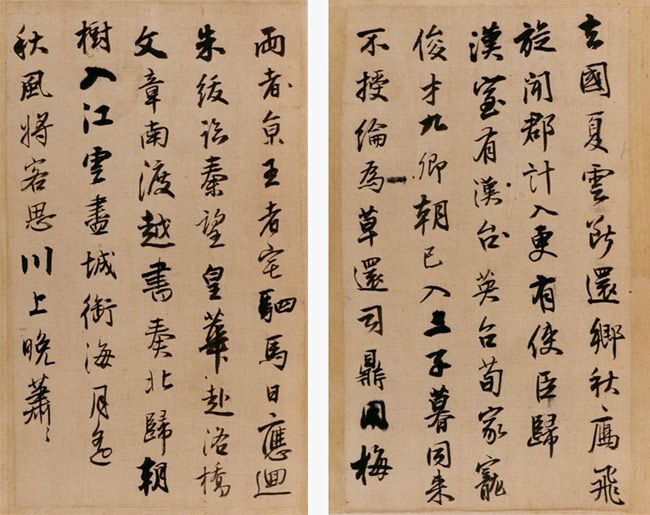 去國夏雲斷還鄉秋鴈飛
旋聞郡計入更有使臣歸
漢室有漢台英台荀家寵
俊才九卿朝已入三子暮同来
不授綸為草還司鼎用梅
兩者京王者宅駟馬日應迴
朱紱詠秦望皇華赴洛橋
文章南渡越書奏北歸朝
樹入江雲盡城銜海月遙
秋風將客思川上晚蕭〻